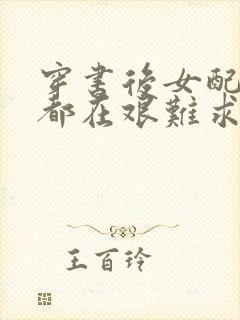 穿書後女配
都在艱難求
王百玲